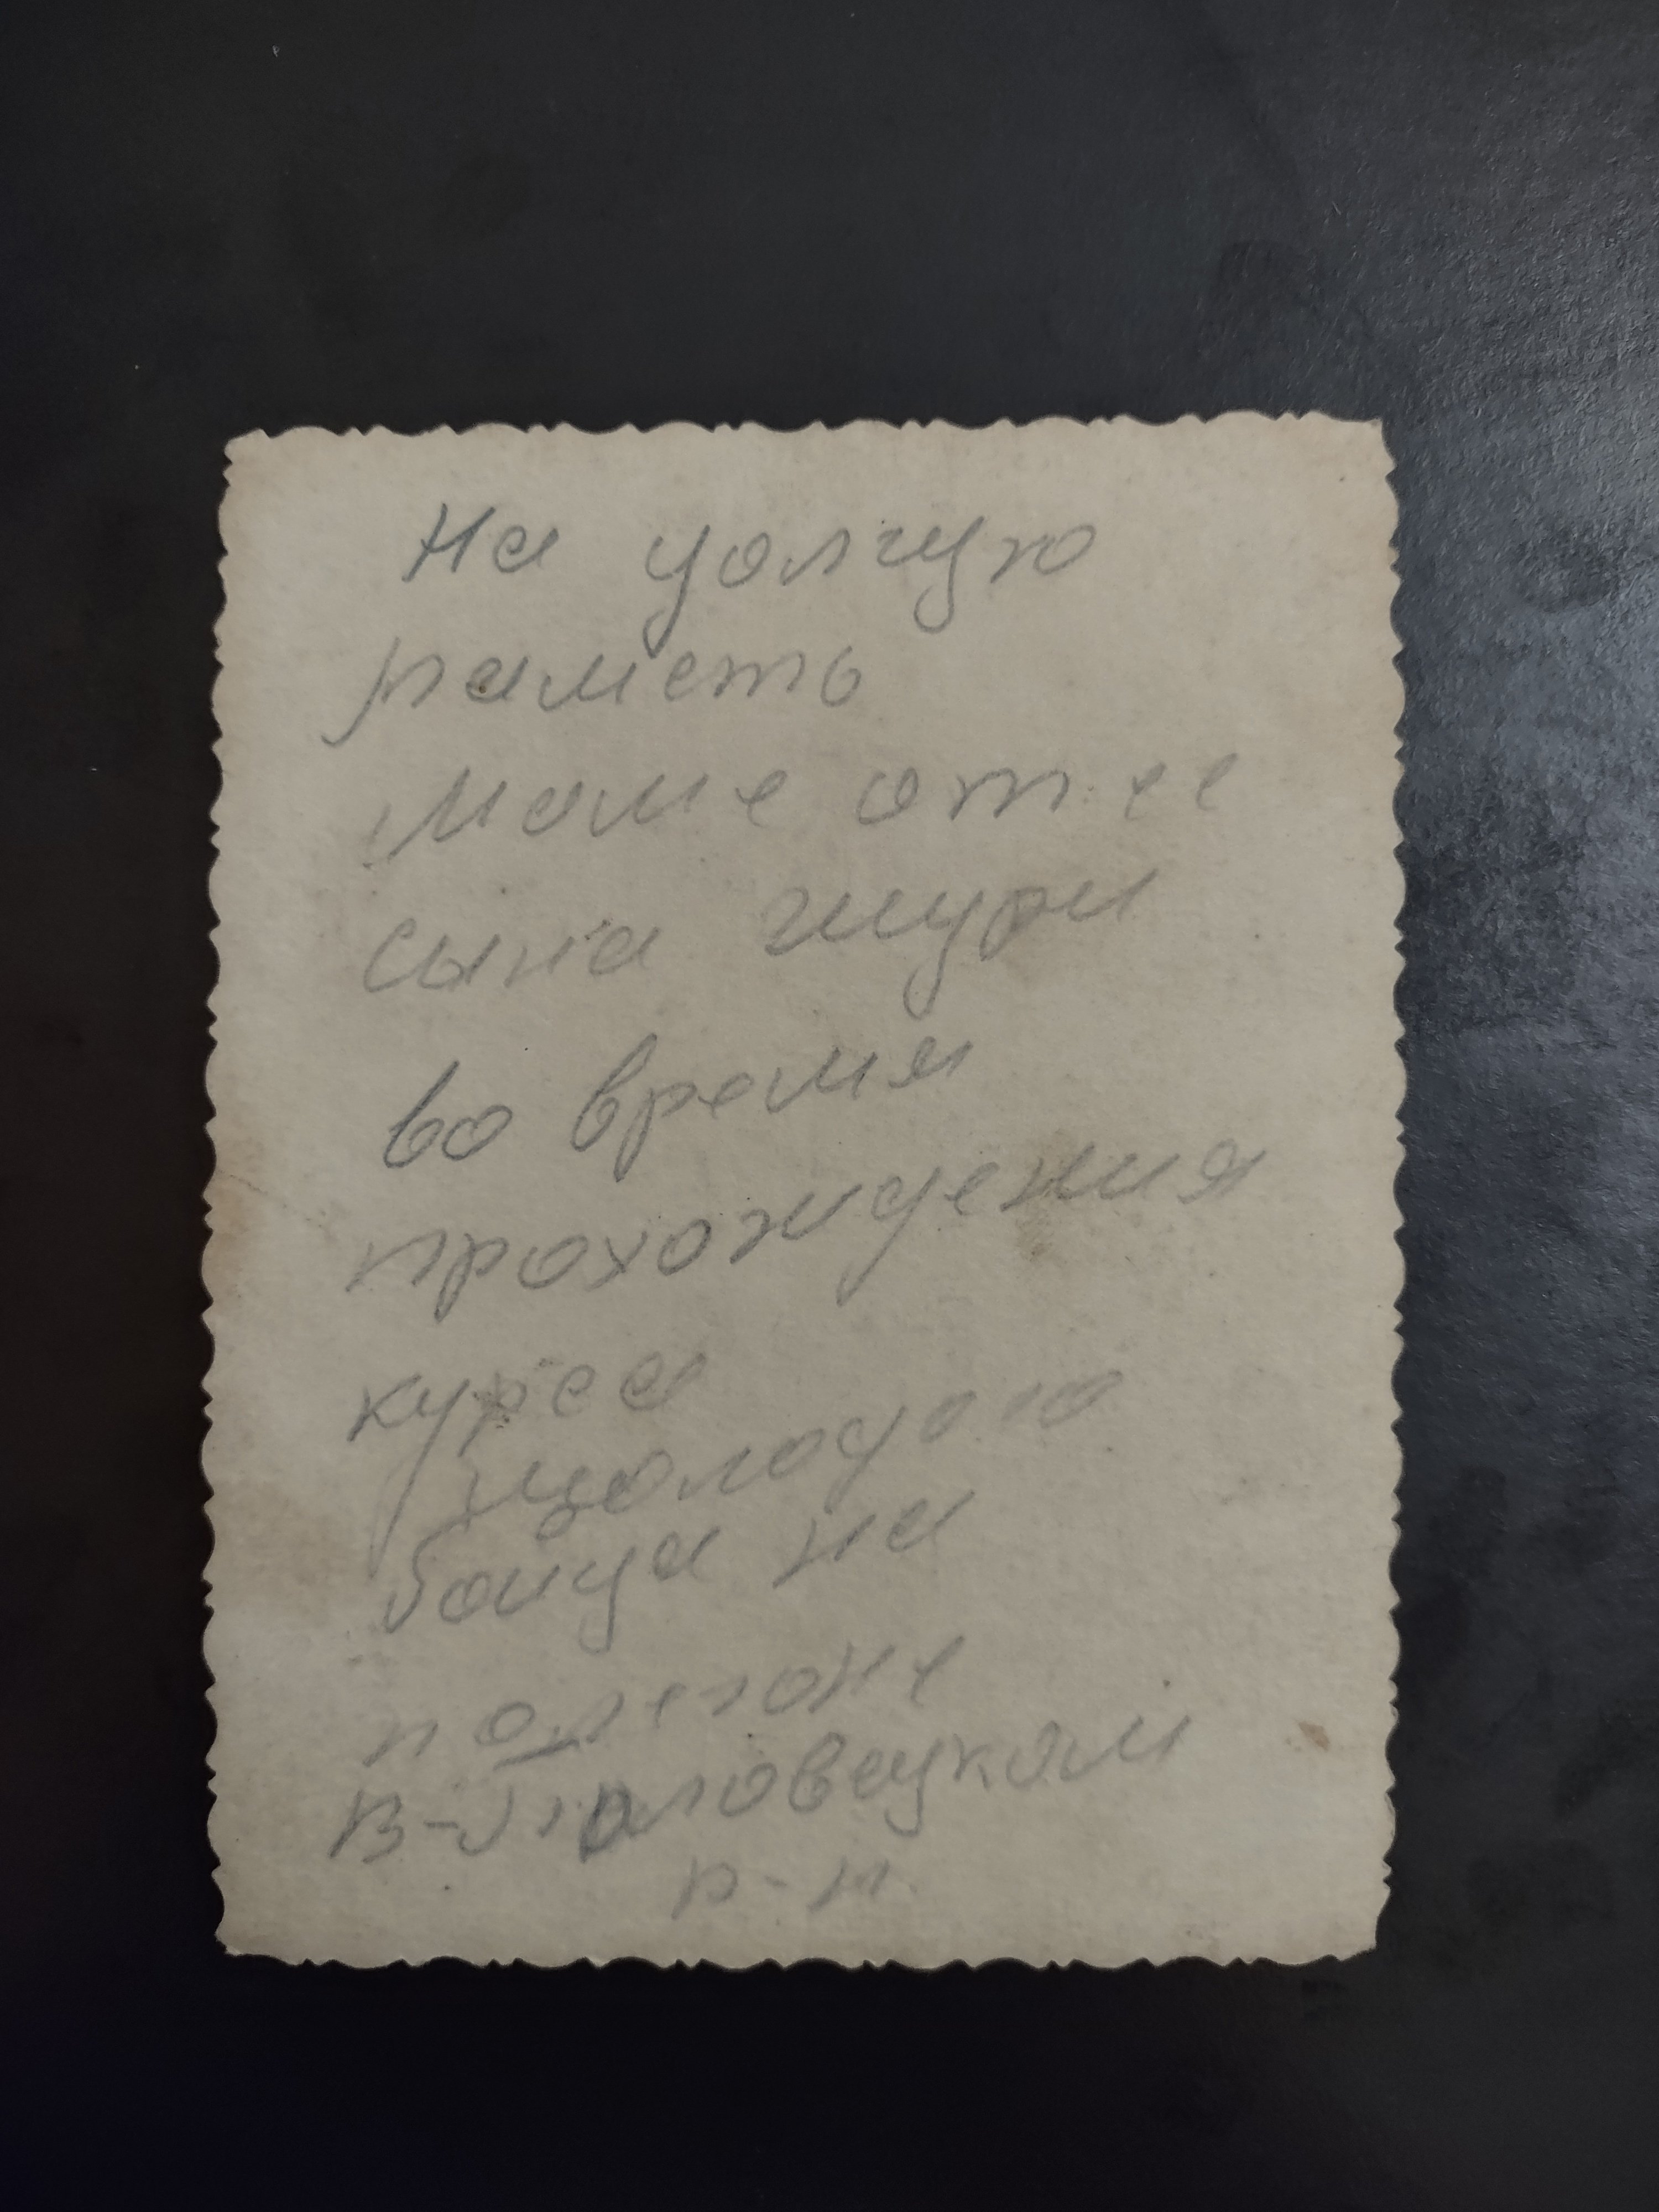 На долгую
паметь
маме от ее
сына Шури
во время
прохождения
курса
молодого
бойца на
полегоне
р-н